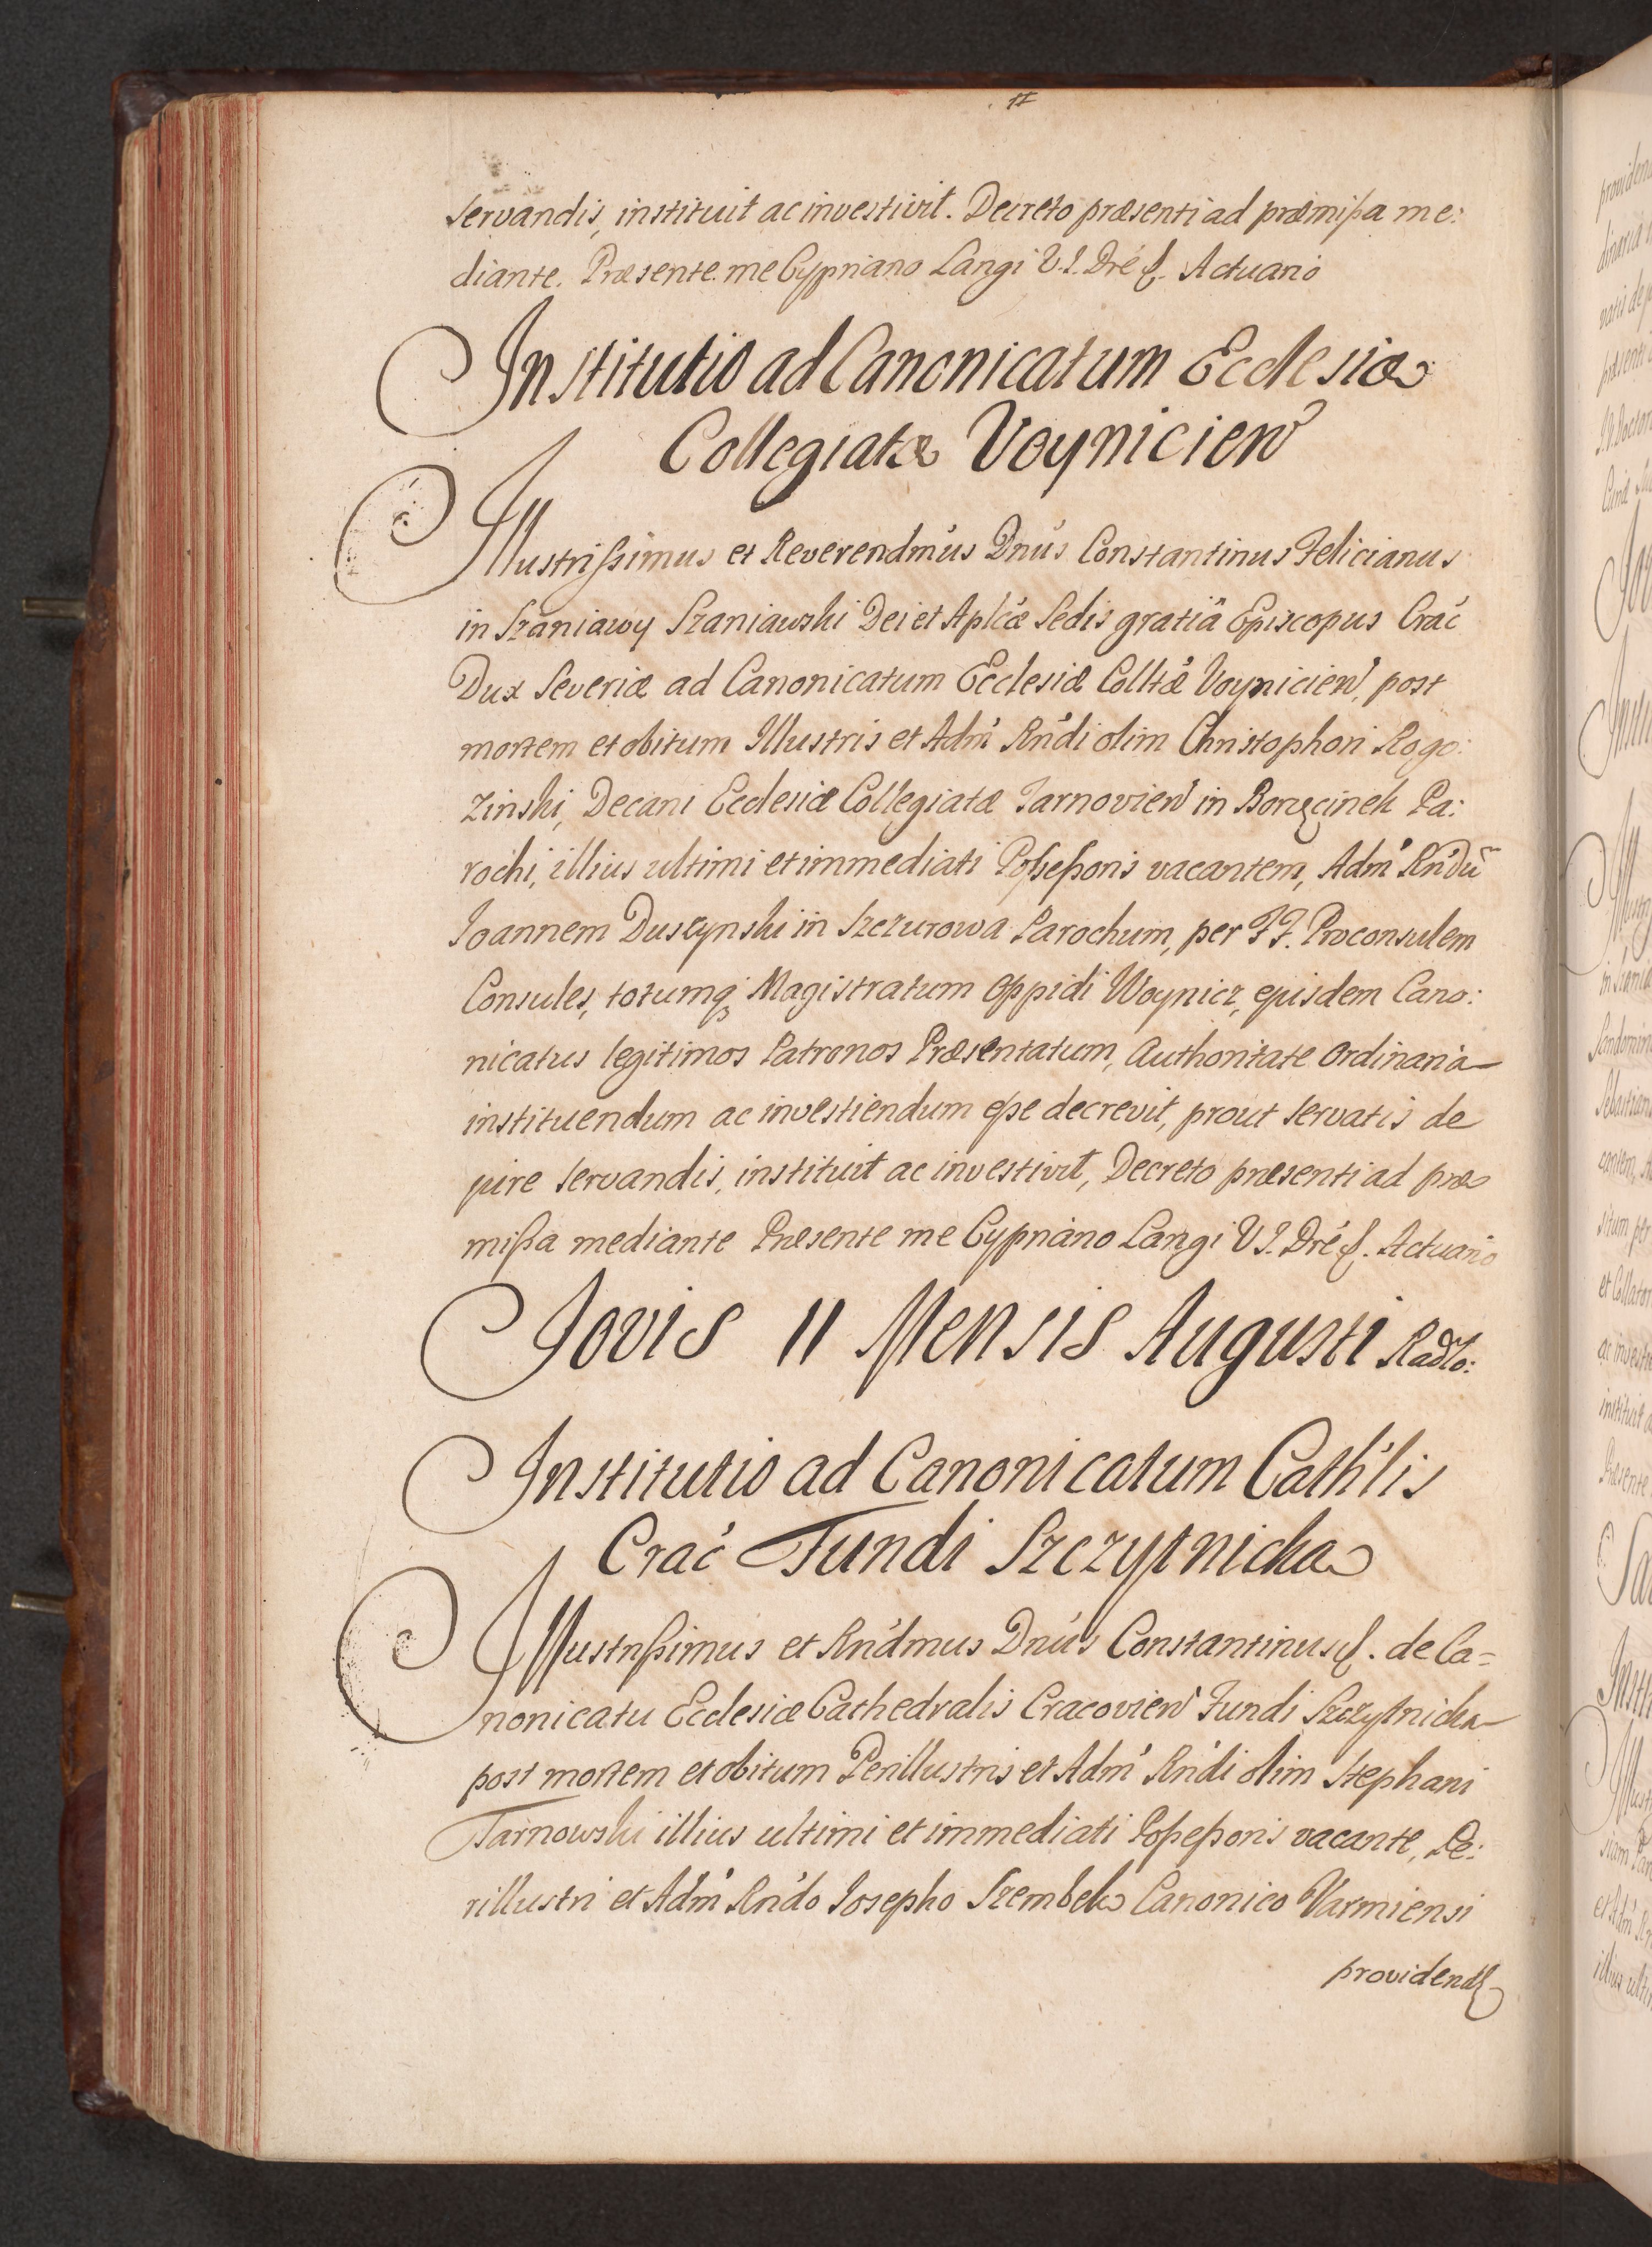 servandis, instituit ac investivit. Decreto præsenti ad præmißa me:
diante. Præsente me Cypriano Langi V.I. Dré &. Actuario
Institutio ad Canonicatum Ecclesiæ
Collegiatæ Voynicień
Illustrißimus et Reverendmús Dnús Constantinus Felicianus
in Szaniawy Szaniawski Dei et Aplcæ Sedis gratiâ Episcopus Crać
Dux Severiæ ad Canonicatum Ecclesiæ Colltæ Voynicień, post
mortem et obitum Illustris et Adm̃ Rńdi olim Christophori Rogo:
zinski, Decani Ecclesiæ Collegiatæ Tarnovień in Borzęcinek Pa:
rochi, illius ultimi et immediati Poßeßoris vacantem, Adm̃ Rńdũ
Ioannem Duszynski in Szczurowa Parochum, per FF. Proconsulem
Consules, totumq; Magistratum Oppidi Woynicz, ejusdem Cano:
nicatus legitimos Patronos Præsentatum, Authoritate Ordinaria
instituendum ac investiendum eße decrevit, prout servatis de
jure servandis, instituit ac investivit, Decreto præsenti ad præ
mißa mediante Præsente me Cypriano Langi V I. Dré &. Actuario
Jovis 11 Mensis Augusti Radło:
Institutio ad Canonicatum Cath́lis
Crać Fundi Szczytnicka
Illustrißimus et Rńdmus Dnús Constantinus &. de Ca=
nonicatu Ecclesiæ Cathedralis Cracovień Fundi Szczytnicka
post mortem et obitum Perillustris et Adm̃ Rńdi olim Stephani
Tarnowski illius ultimi et immediati Poßeßoris vacante, Pe:
rillustri et Adm̃ Rńdo Iosepho Szembek Canonico Varmiensi
providend